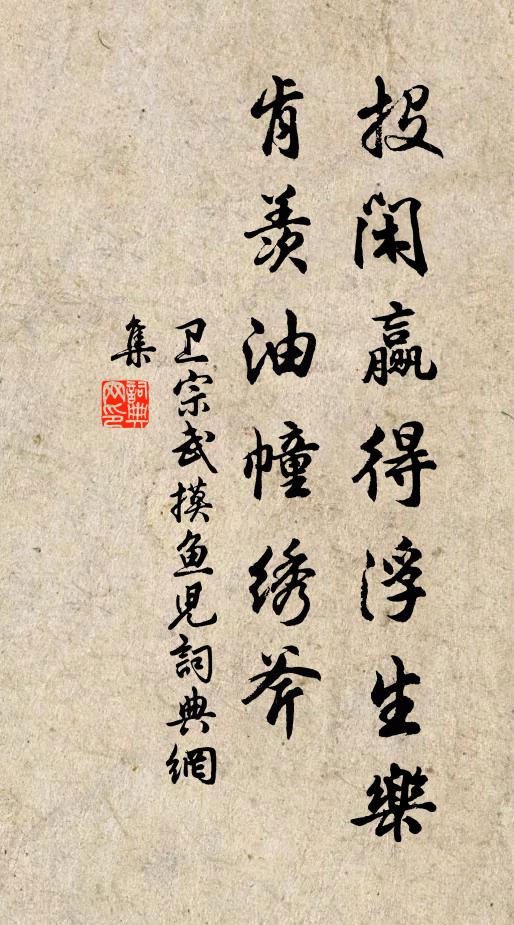 投闲赢得浮生樂
肯羡油幢绣斧
卫宗武摸鱼児詞典網
集
詞典
网印